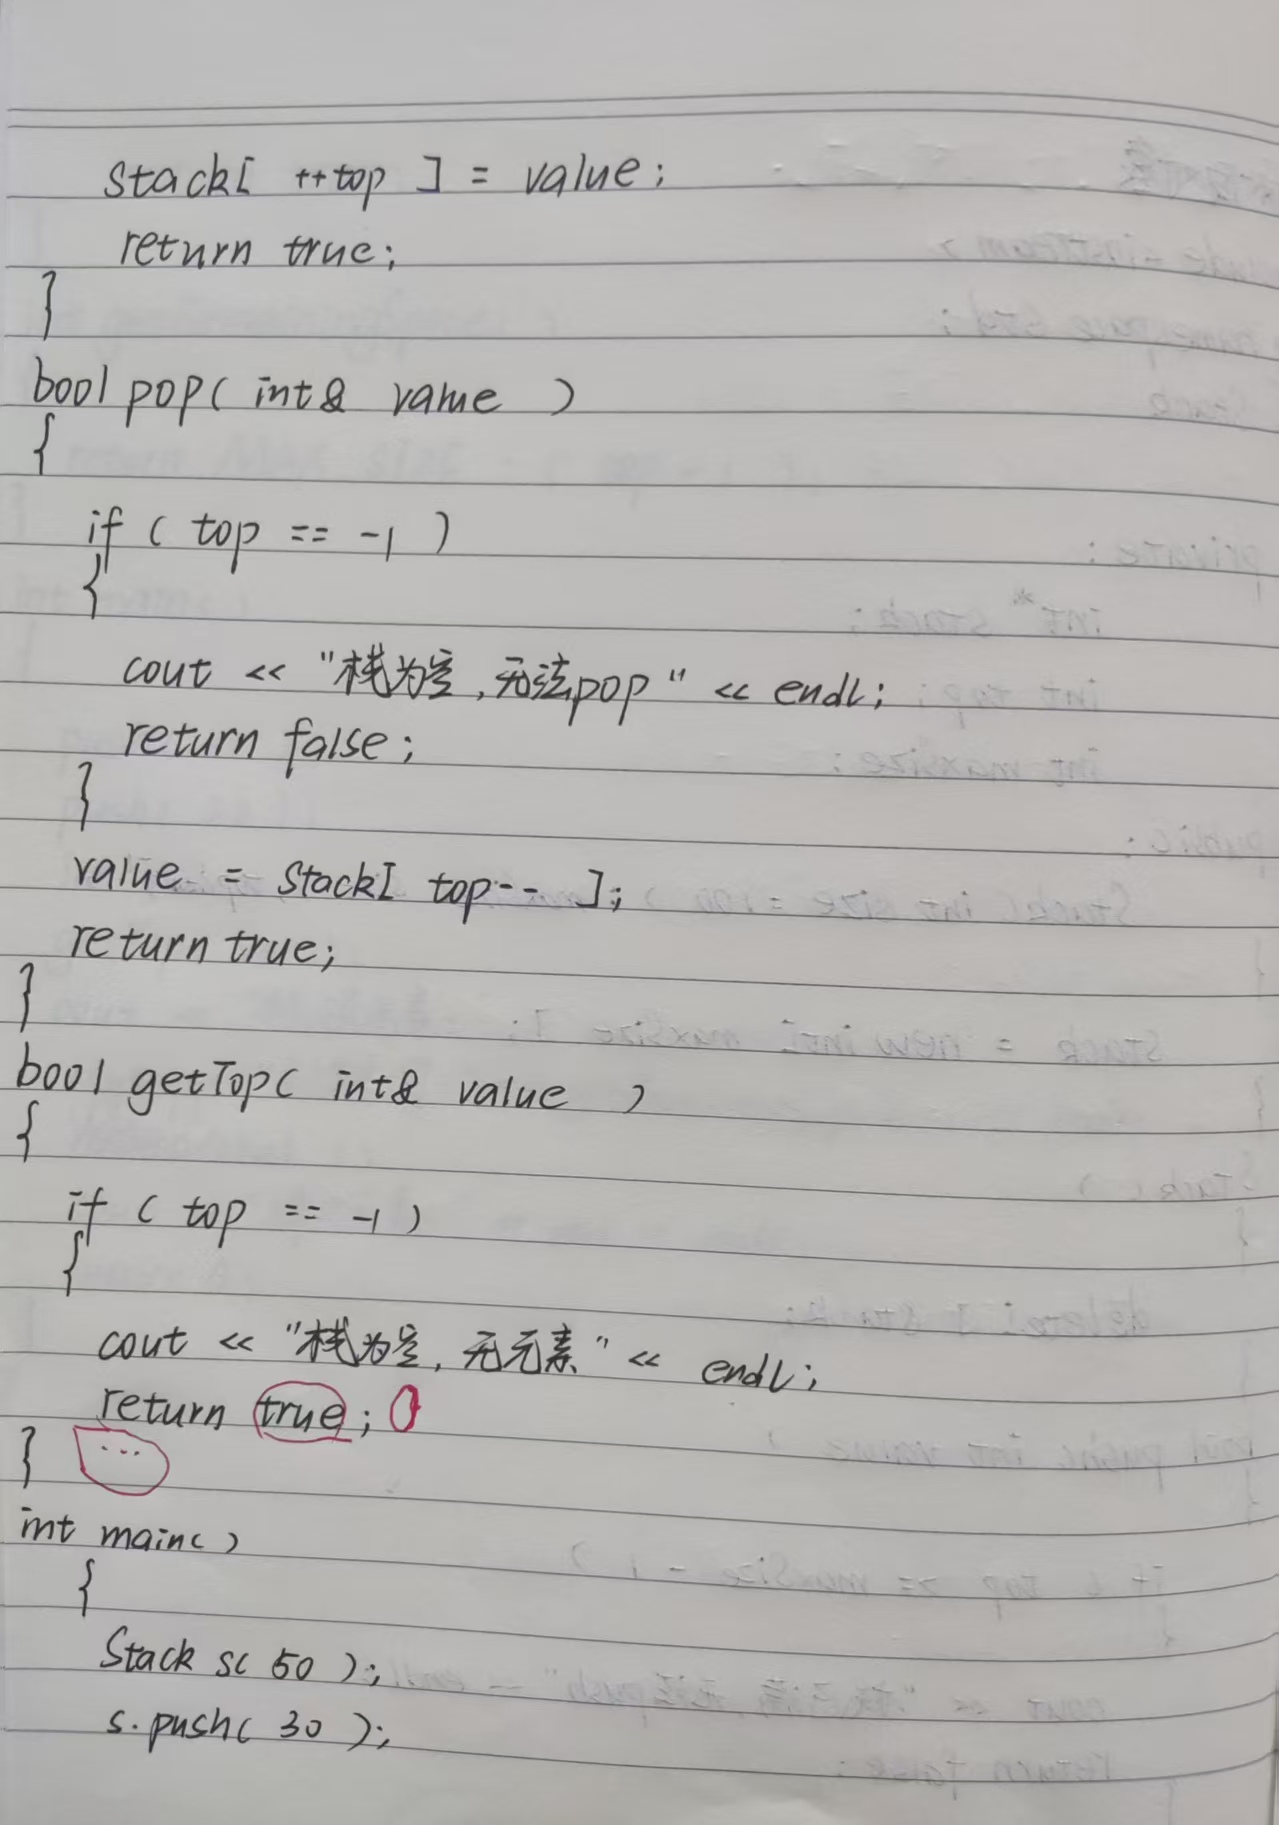 stack[ ++top ] = value;
return true;
}
bool pop( int& value )
{
if ( top == -1 )
{
cout << "栈为空,无法pop" << endl;
return false;
}
value = stack[ top-- ];
return true;
}
bool getTop( int& value )
{
if ( top == -1 )
{
cout << "栈为空,无元素" << endl;
return true;
} ...
int main()
{
Stack s( 50 );
s.push( 30 );